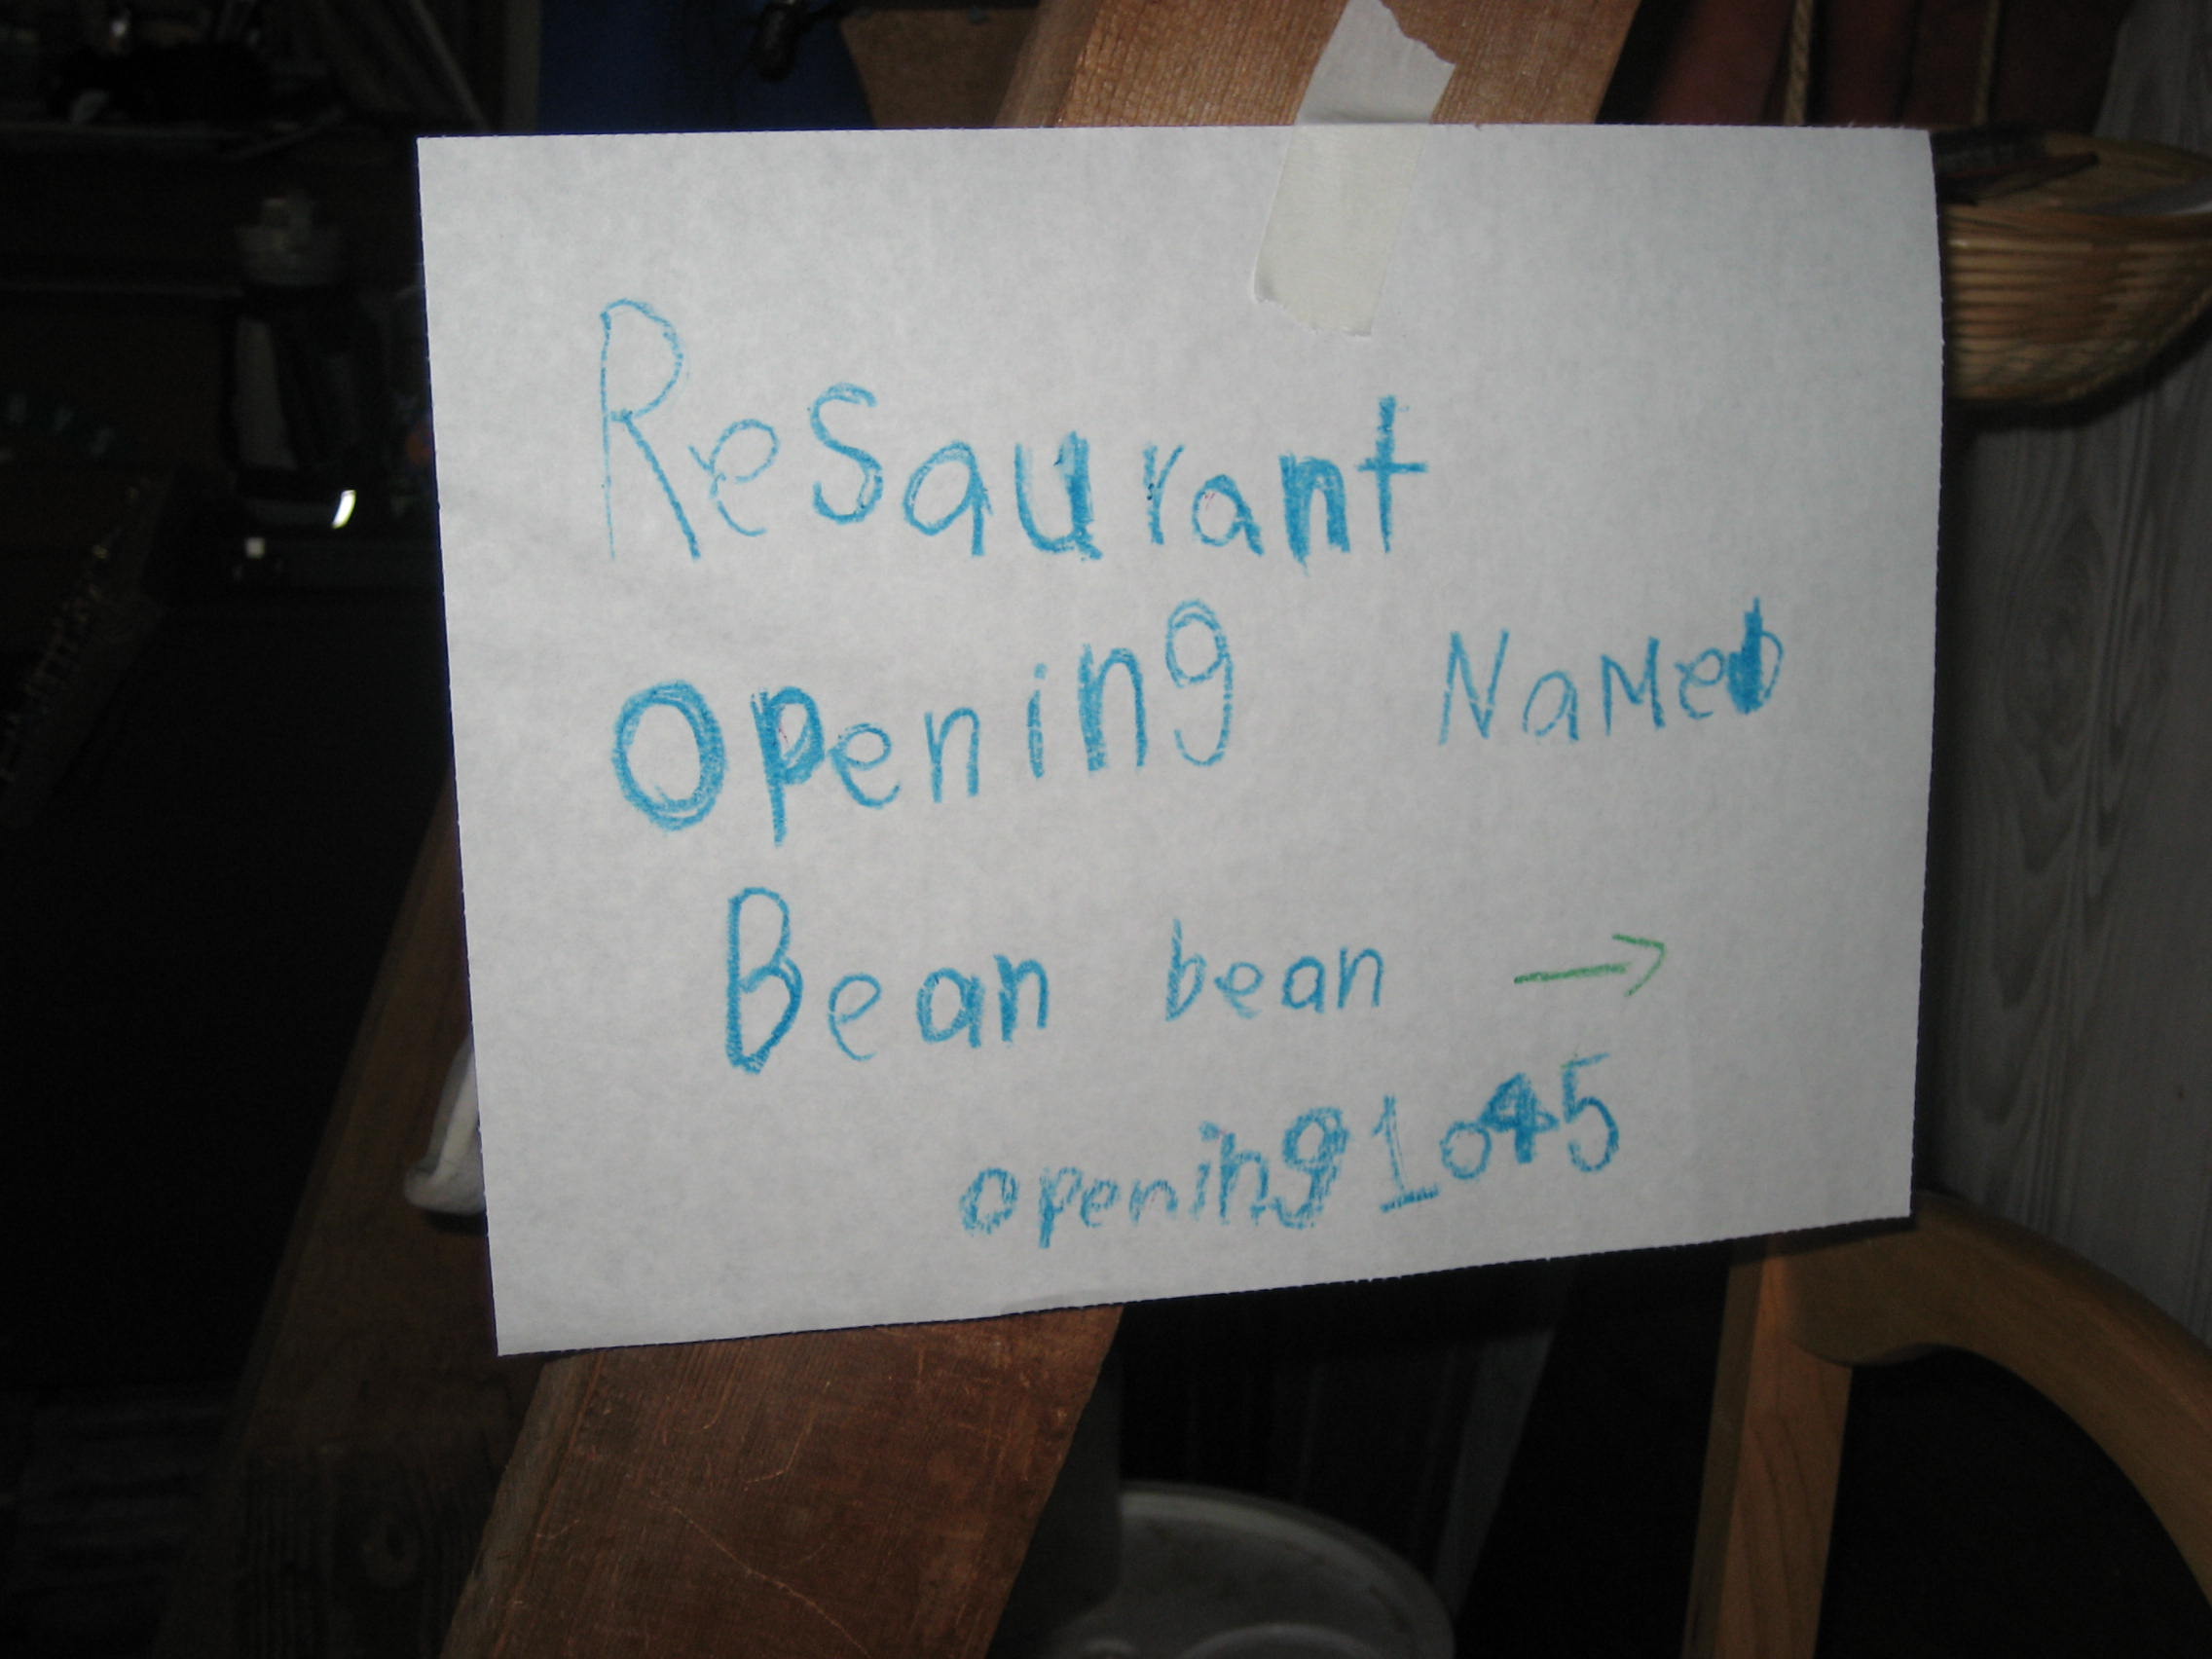 Resaurant
opening Named
Bean bean →
opening 1045